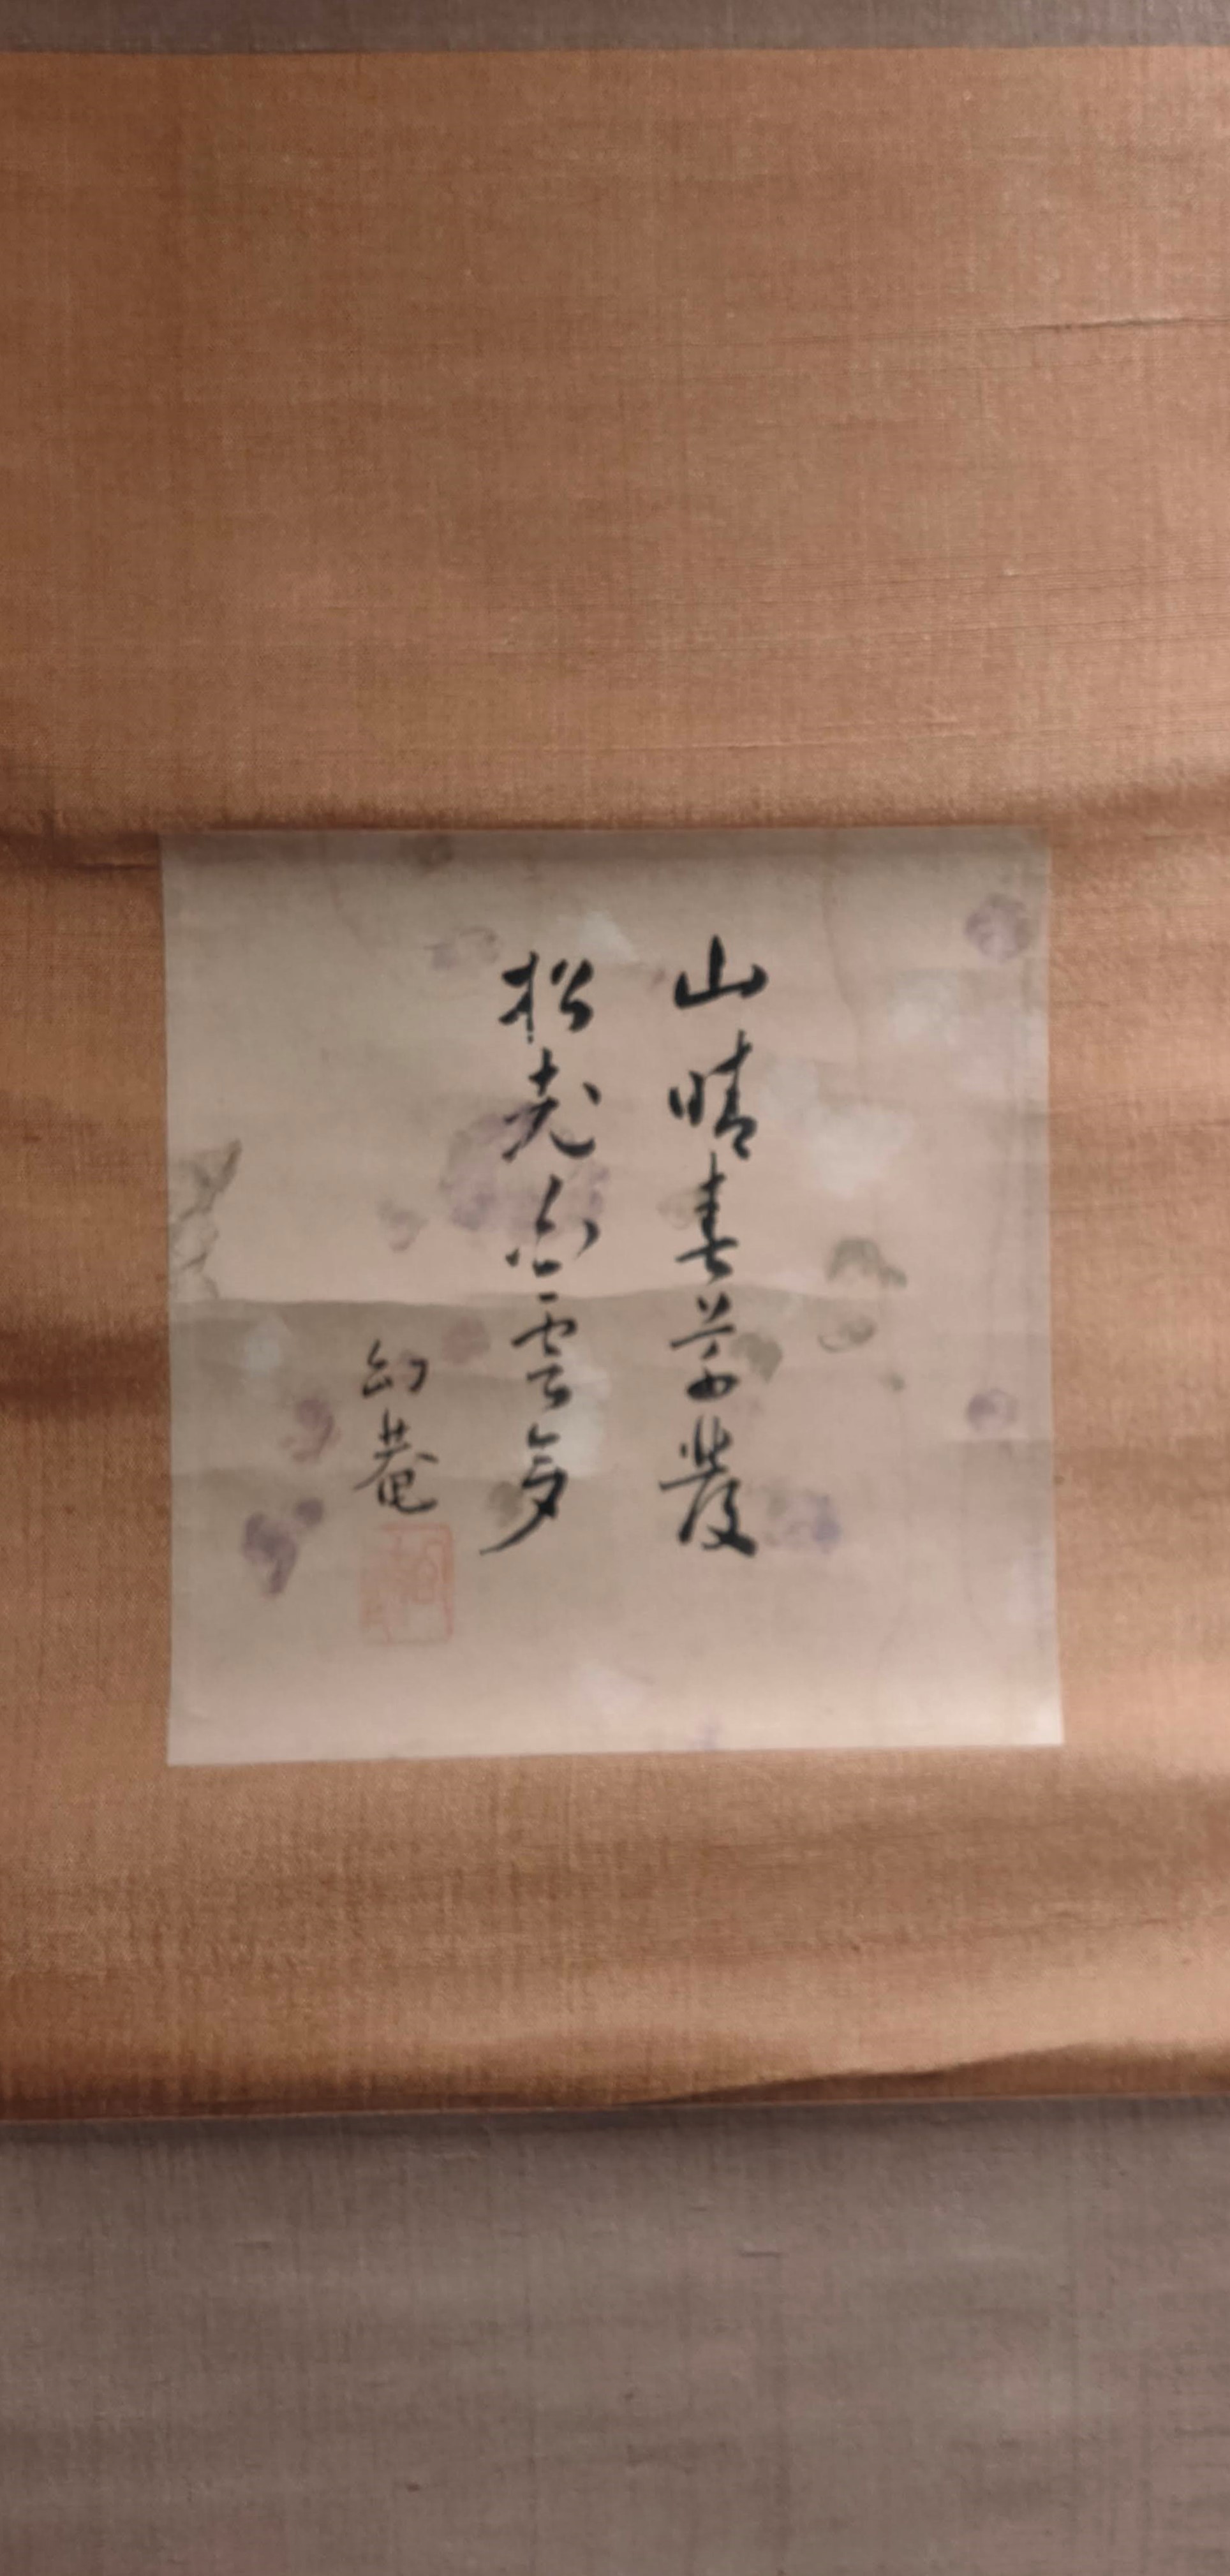 山晴春草發
松老白雲多
幻菴